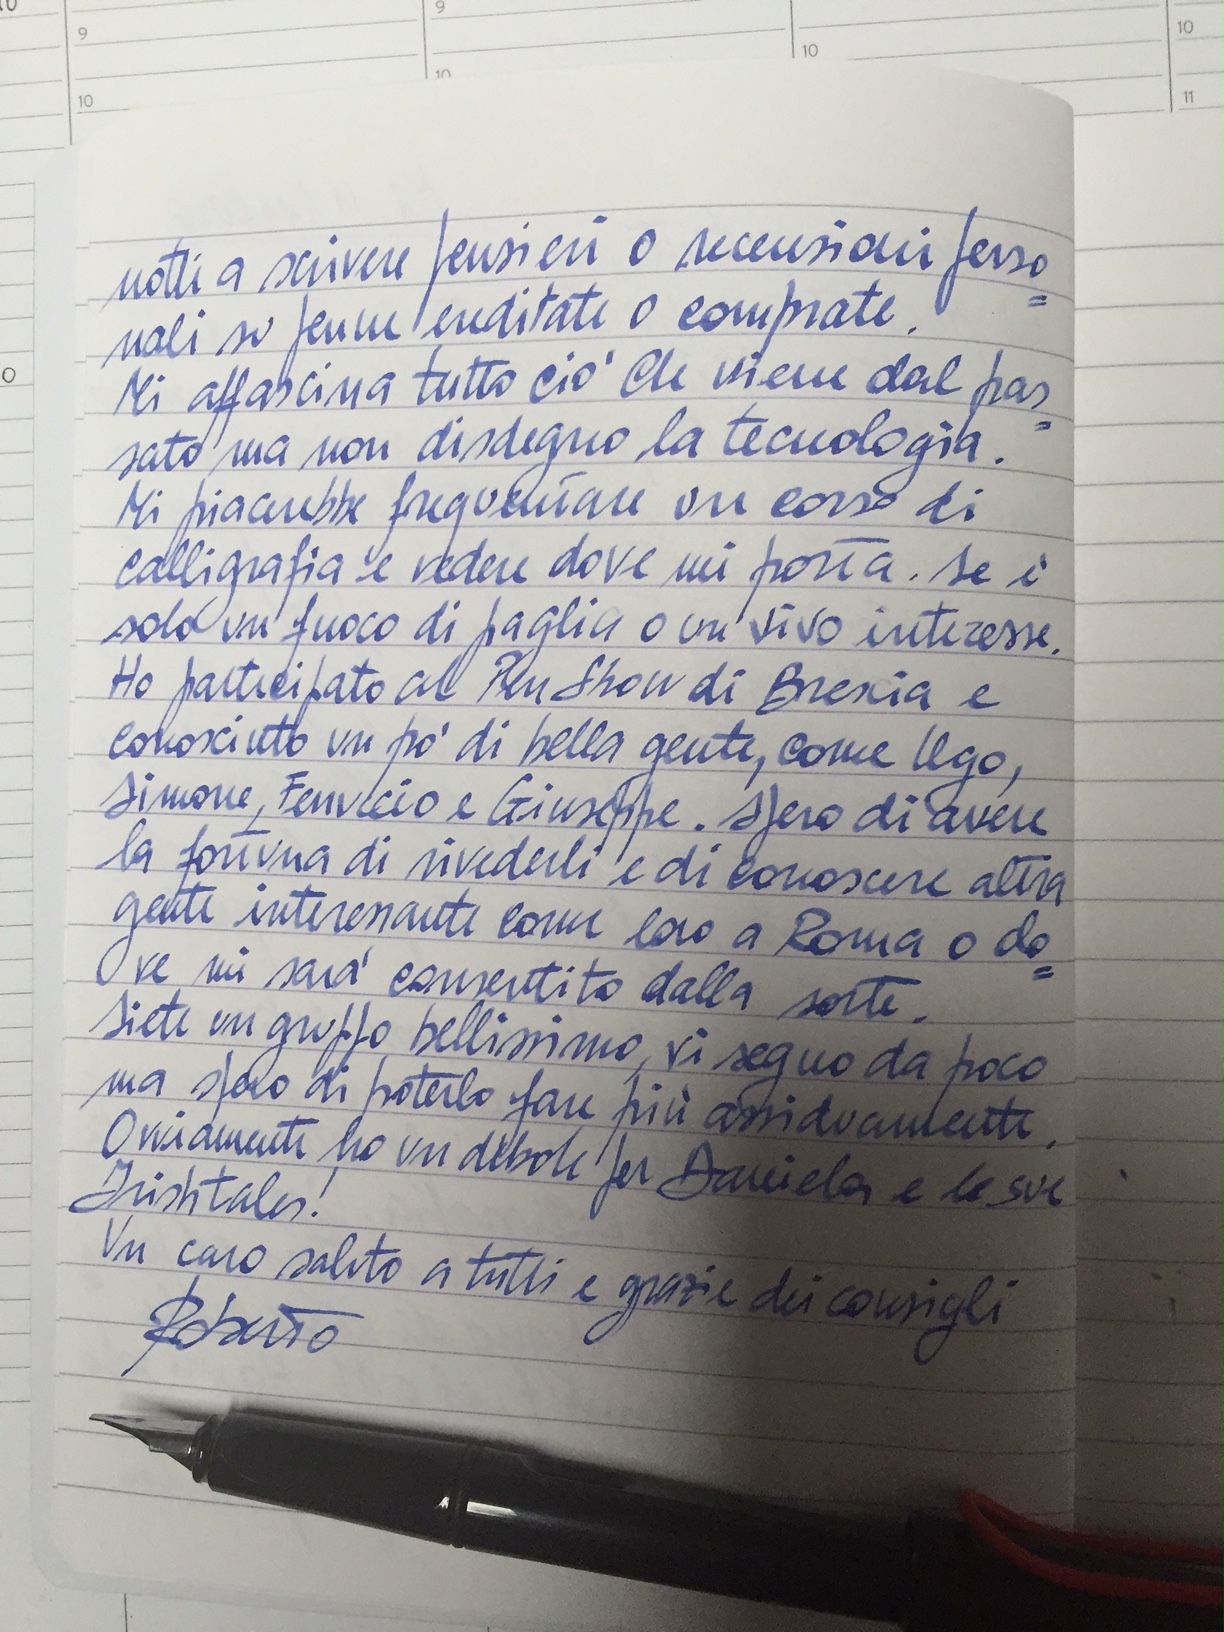 9
9
10
10
10
10
11
notti a scrivere pensieri o recensioni perso=
nali su penne ereditate o comprate.
Mi affascina tutto ciò che viene dal pas=
sato ma non disdegno la tecnologia.
Mi piacerebbe frequentare un corso di
calligrafia e vedere dove mi porta. Se è
solo un fuoco di paglia o un vivo interesse.
Ho partecipato al Pen Show di Brescia e
conosciuto un po' di bella gente, come Ugo,
Simone, Ferruccio e Giuseppe. Spero di avere
la fortuna di rivederli e di conoscere altra
gente interessante come loro a Roma o do=
ve mi sarà consentito dalla sorte.
Siete un gruppo bellissimo, vi seguo da poco
ma spero di poterlo fare più assiduamente.
Ovviamente ho un debole per Daniela e le sue
Irishtales!
Un caro saluto a tutti e grazie dei consigli
Roberto